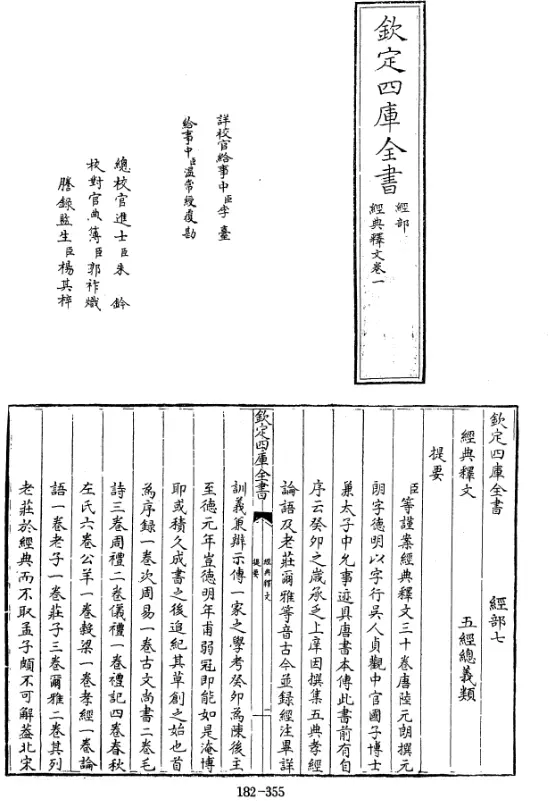 欽定四庫全書
經部
經典釋文卷一
詳校官給事中臣李臺
給事中臣溫常綬覆勘
總校官進士臣朱鈐
校對官典簿臣郭祚熾
謄錄監生臣楊其梓
欽定四庫全書 經部七
經典釋文 五經總義類
提要
臣等謹案經典釋文三十卷唐陸元朗撰元
朗字德明以字行吳人貞觀中官國子博士
兼太子中允事迹具唐書本傳此書前有自
序云癸卯之歲承乏上庠因撰集五典孝經
論語及老莊爾雅等音古今並録經注畢詳
欽定四庫全書
經典釋文
提要
一
訓義兼辯示傳一家之學考癸卯為陳後主
至德元年豈德明年甫弱冠即能如是淹博
耶或積久成書之後追紀其草創之始也首
為序録一卷次周易一卷古文尚書二卷毛
詩三卷周禮二卷儀禮一卷禮記四卷春秋
左氏六卷公羊一卷穀梁一卷孝經一卷論
語一卷老子一卷莊子三卷爾雅二卷其列
老莊於經典而不取孟子頗不可解葢北宋
182-355